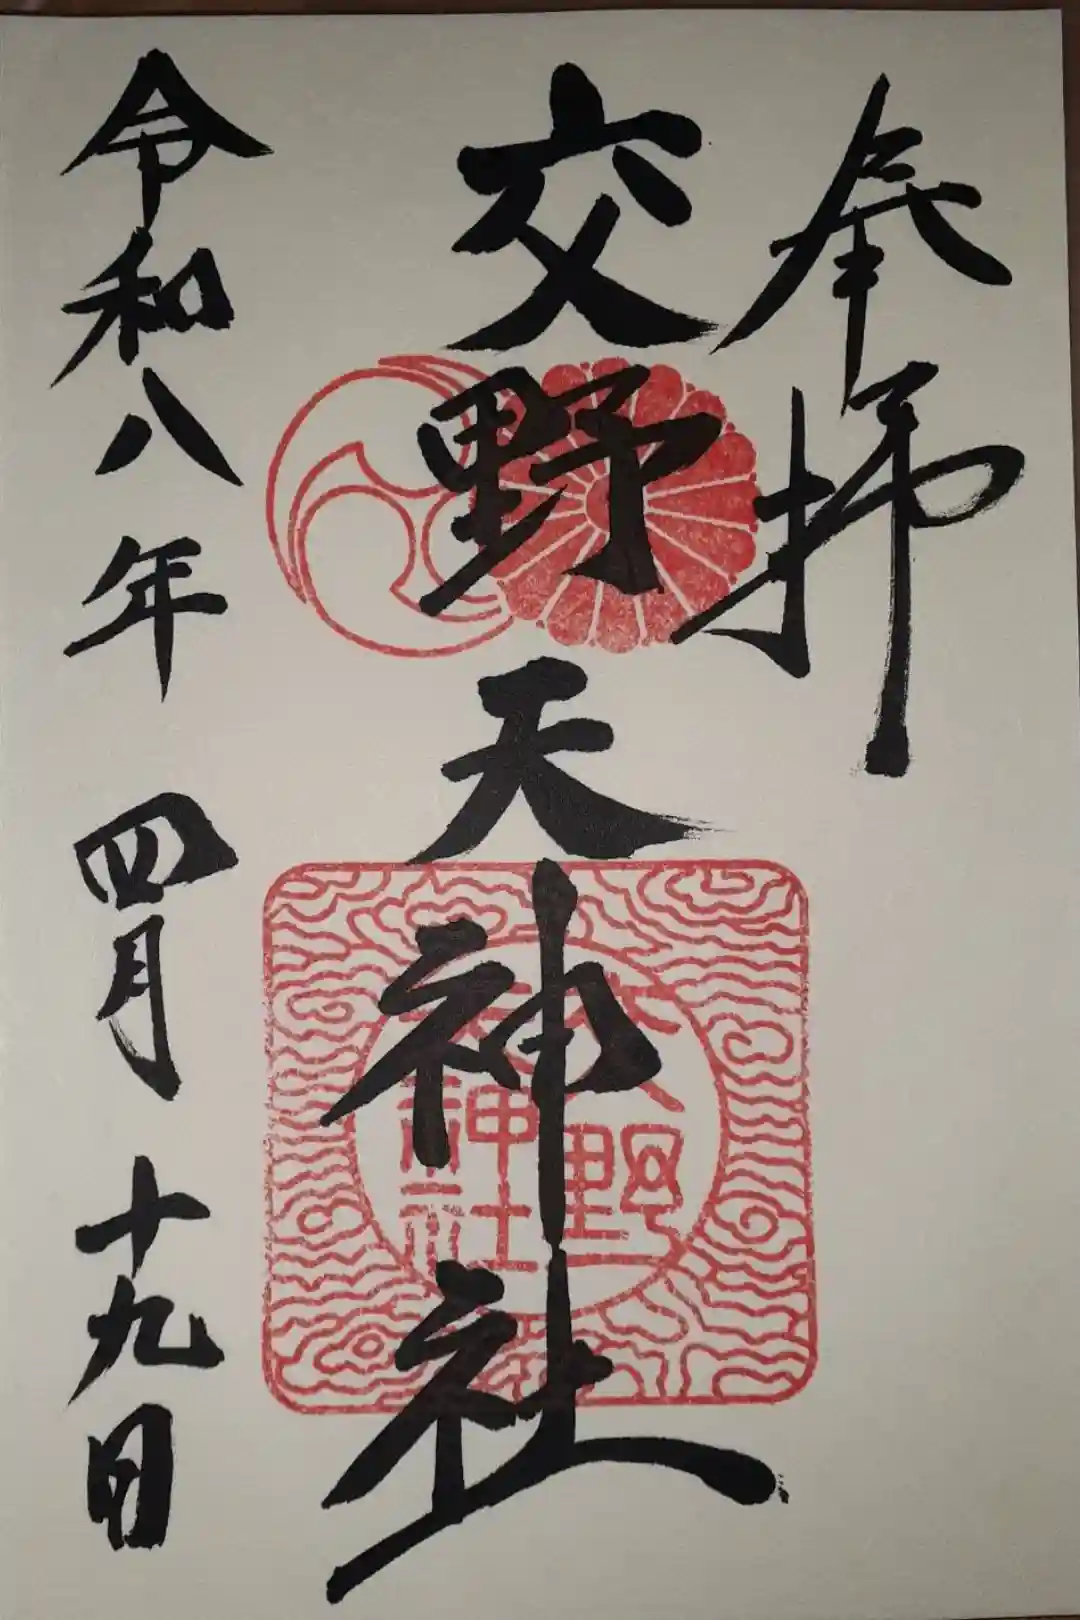 奉拝
交野天神社
交野天神社
令和八年 四月 十九日